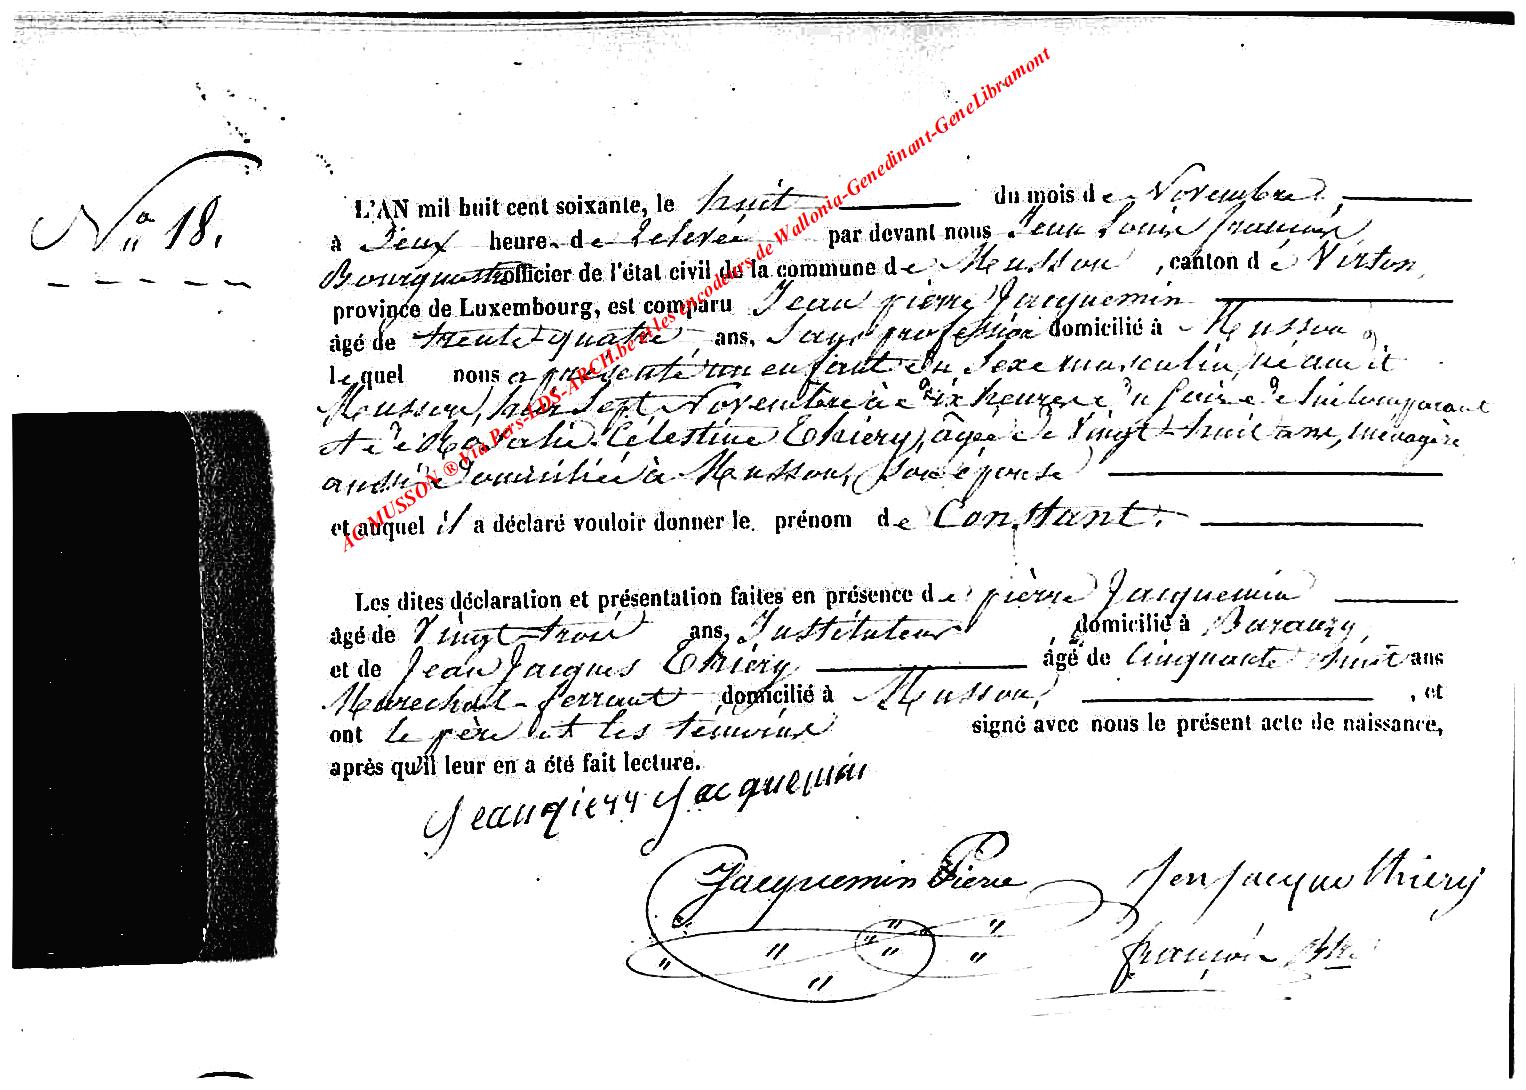 N° 18.
L'AN mil huit cent soixante, le huit du mois de Novembre,
à Deux heure de relevée par devant nous Jean Louis françois
officier de l'état civil de la commune de Musson, canton de Virton,
province de Luxembourg, est comparu Jean pierre Jacquemin
âgé de trente-quatre ans, Sans profession domicilié à Musson
lequel nous a présenté un enfant du Sexe masculin, né au dit
Musson, hier Sept Novembre à dix heures du Soir, de lui Comparant
et de Célestine Thiéry, âgée de Vingt-huit ans, ménagère
aussi domiciliée à Musson, Son épouse
et auquel il a déclaré vouloir donner le prénom de Constant.
Les dites déclaration et présentation faites en présence de pierre Jacquemin
âgé de Vingt-trois ans, Instituteur domicilié à
et de Jean Jacques Thiéry âgé de Cinquante huit ans
Marechal-ferrant domicilié à Musson, , et
ont le père et les témoins signé avec nous le présent acte de naissance,
après qu'il leur en a été fait lecture.
Jacquemin
Jacquemin Pierre
Jacque thiery
françois
AC MUSSON ® Via Pers-LDS-ARCH.be et les encodeurs de Wallonia-Genedinant-GeneLibramont